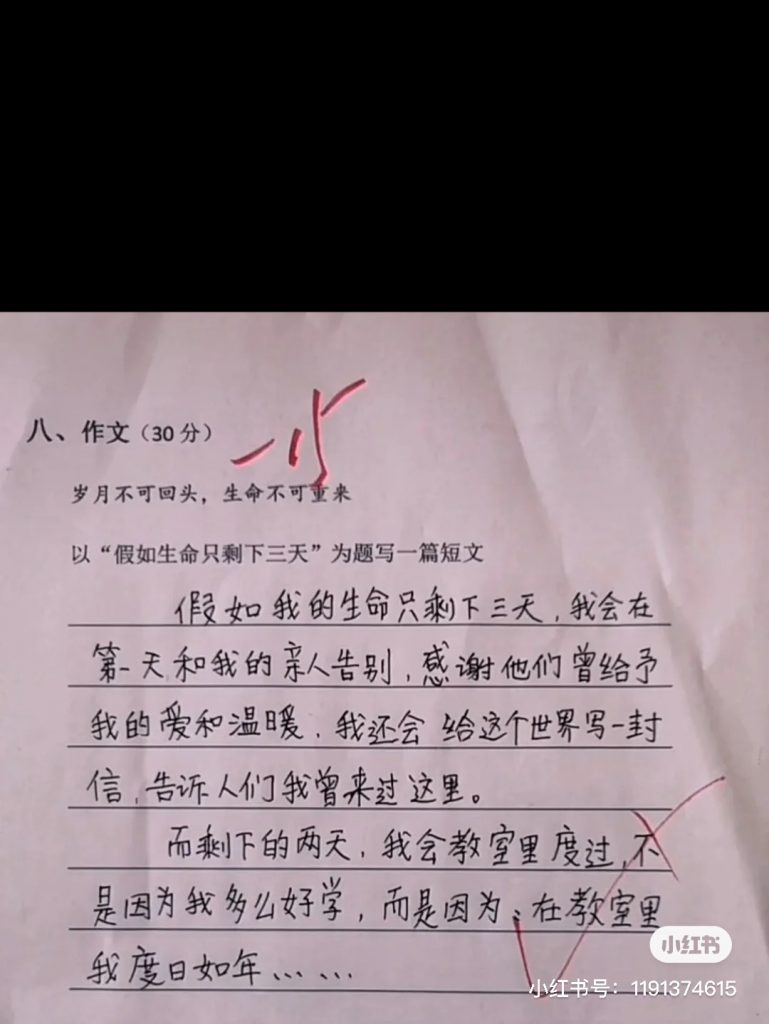 八、作文（30分）
-15
岁月不可回头，生命不可重来
以“假如生命只剩下三天”为题写一篇短文
假如我的生命只剩下三天，我会在
第一天和我的亲人告别，感谢他们曾给予
我的爱和温暖，我还会给这个世界写一封
信，告诉人们我曾来过这里。
而剩下的两天，我会教室里度过，不
是因为我多么好学，而是因为：在教室里
我度日如年……
小红书
小红书号：1191374615